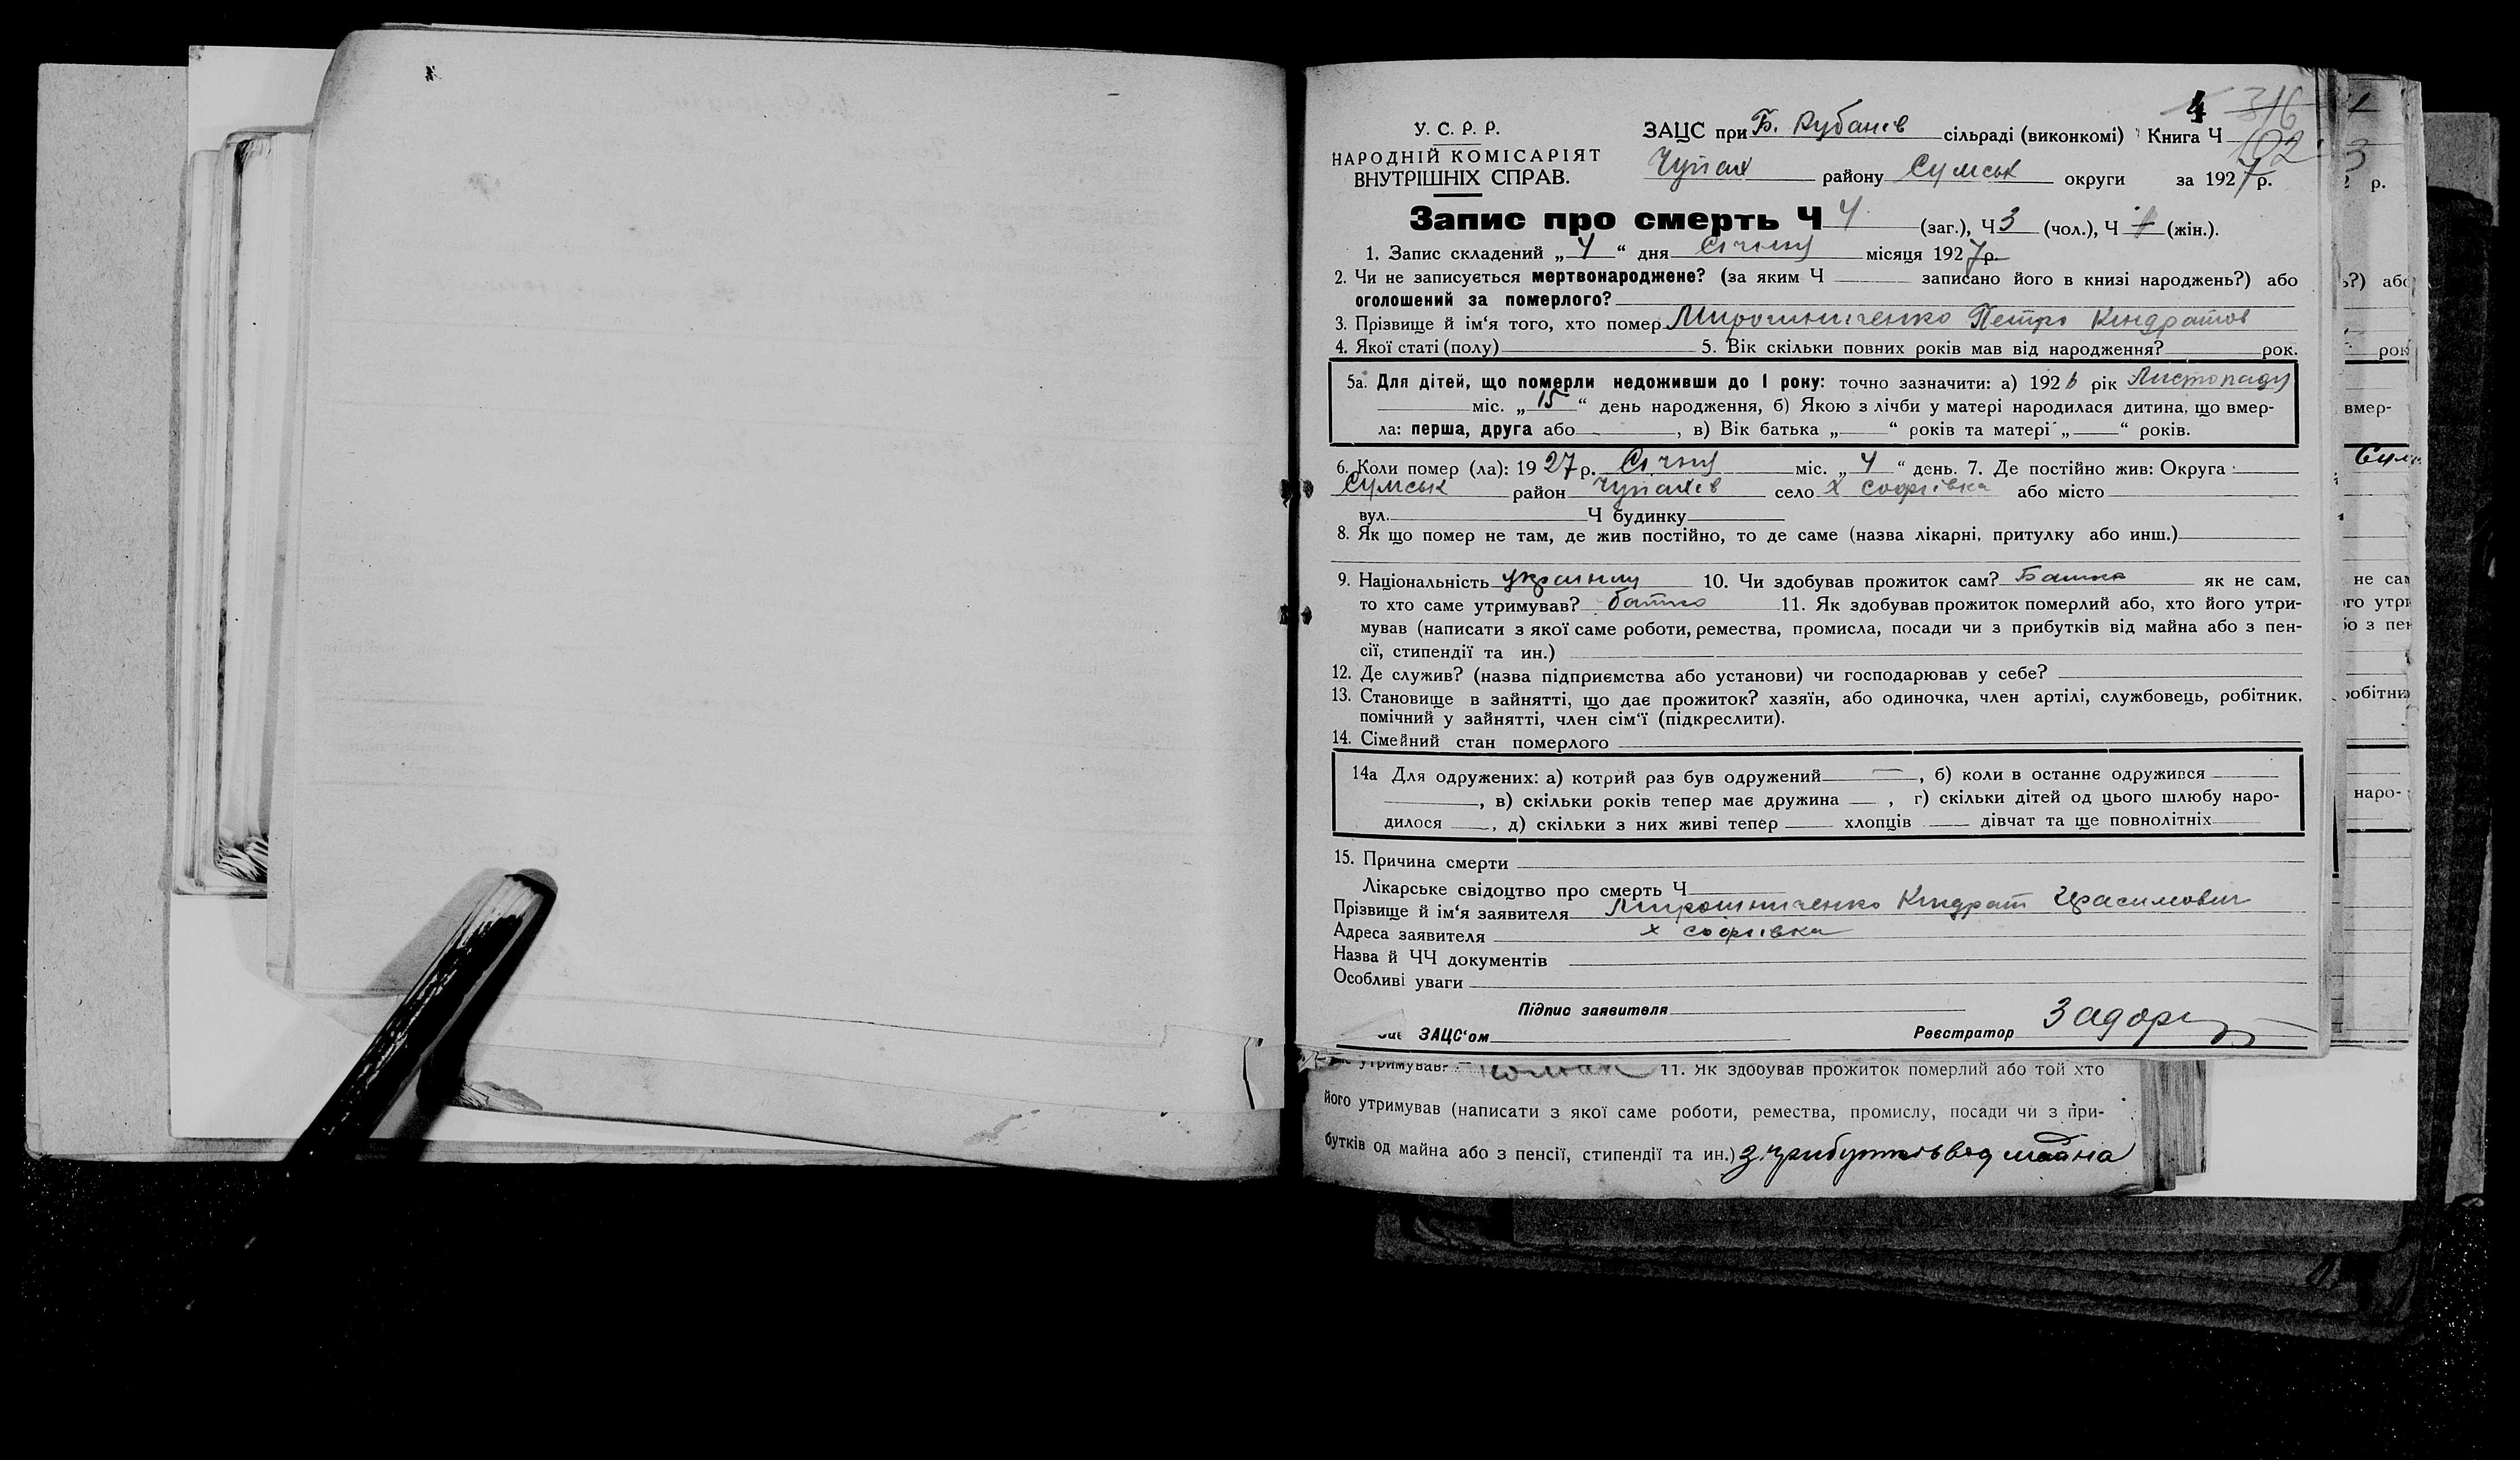 4 316
У. С. Р. Р. ЗАЦС при Б. Рубанів сільраді (виконкомі) Книга Ч 102
НАРОДНІЙ КОМІСАРІЯТ
ВНУТРІШНІХ СПРАВ. Чупах району Сумськ округи за 1927 р.
Запис про смерть Ч 4 (заг.), Ч 3 (чол.), Ч (жін.).
1. Запис складений „4“ дня Січня місяця 1927 р.
2. Чи не записується мертвонароджене? (за яким Ч записано його в книзі народжень?) або
оголошений за померлого?
3. Прізвище й ім‘я того, хто помер Мирошниченко Петро Кіндратов
4. Якої статі (полу) 5. Вік скільки повних років мав від народження? рок.
5а. Для дітей, що померли недоживши до 1 року: точно зазначити: а) 1926 рік Листопаду
міс. „15“ день народження, б) Якою з лічби у матері народилася дитина, що вмер-
ла: перша, друга або , в) Вік батька „ “ років та матері „ “ років.
6. Коли помер (ла): 1927 р. Січня міс. „4“ день. 7. Де постійно жив: Округа
Сумськ район Чупахів село х Софіївка або місто
вул. Ч будинку
8. Як що помер не там, де жив постійно, то де саме (назва лікарні, притулку або инш.)
9. Національність 10. Чи здобував прожиток сам? Батько як не сам,
то хто саме утримував? батько 11. Як здобував прожиток померлий або, хто його утри-
мував (написати з якої саме роботи, ремества, промисла, посади чи з прибутків від майна або з пен-
сії, стипендії та ин.)
12. Де служив? (назва підприємства або установи) чи господарював у себе?
13. Становище в зайнятті, що дає прожиток? хазяїн, або одиночка, член артілі, службовець, робітник,
помічний у зайнятті, член сім‘ї (підкреслити).
14. Сімейний стан померлого
14а Для одружених: а) котрий раз був одружений — , б) коли в останнє одружився
, в) скільки років тепер має дружина , г) скільки дітей од цього шлюбу наро-
дилося , д) скільки з них живі тепер хлопців дівчат та ще повнолітніх
15. Причина смерти
Лікарське свідоцтво про смерть Ч
Прізвище й ім‘я заявителя Мирошниченко Кіндрат Герасимович
Адреса заявителя х Софіївка
Назва й ЧЧ документів
Особливі уваги
Підпис заявителя
ЗАЦС‘ом Реєстратор
утримував? 11. Як здобував прожиток померлий або той хто
його утримував (написати з якої саме роботи, ремества, промислу, посади чи з при-
бутків од майна або з пенсії, стипендії та ин.) з прибутків від майна